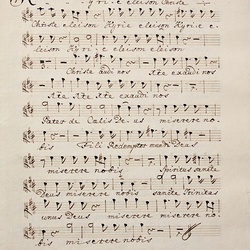 K - y - ri - e eleison Christe
Christe eleison Kyrie e -
leison Kyri - e eleison eleison
Christe audi nos Xte Xte exaudi nos
Xte audi nos Xte Xte exaudi nos
Pater de Cælis De - us miserere no -
bis Fili Redemptor mundi Deus
miserere nobis Spiritus sancte
Deus miserere nobis sancta Trinitas
unus Deus miserere miserere no -
bis miserere nobis